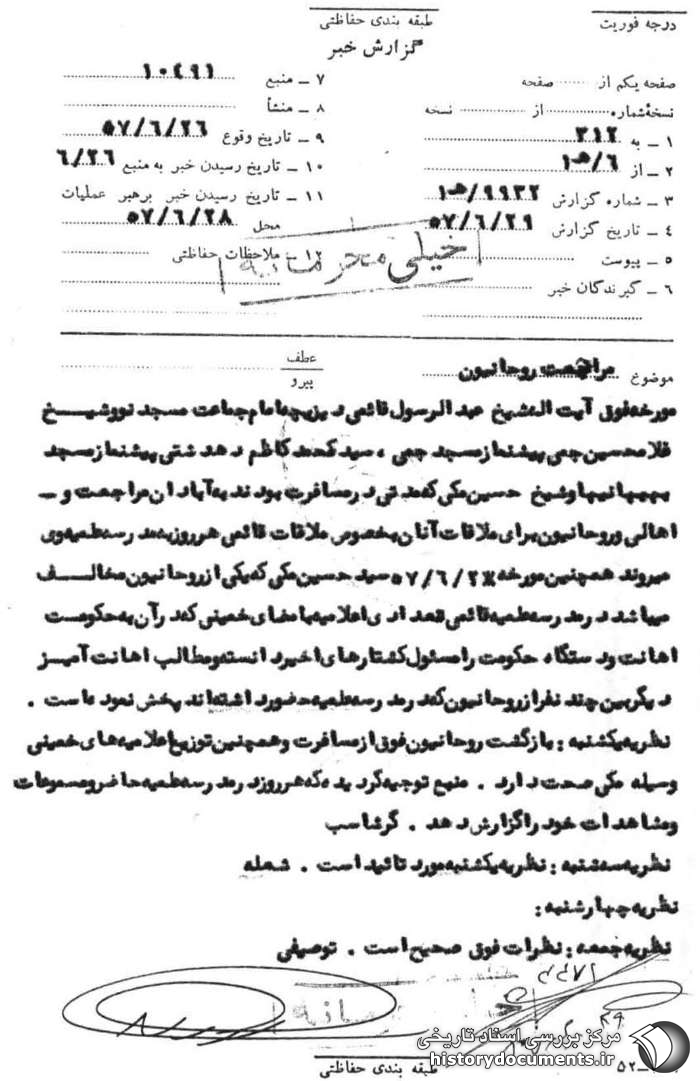 درجه فوریت
طبقه بندی حفاظتی
گزارش خبر
صفحه یکم از صفحه
نسخه شماره از نسخه
۱ – به ۳۱۲
۲ – از ۶/هـ۱
۳ – شماره گزارش ۹۹۳۲/هـ۱
۴ – تاریخ گزارش ۵۷/۶/۲۹
۵ – پیوست
۶ – گیرندگان خبر
۷ – منبع ۱۰۴۹۱
۸ – منشأ
۹ – تاریخ وقوع ۵۷/۶/۲۶
۱۰ – تاریخ رسیدن خبر به منبع ۶/۲۶
۱۱ – تاریخ رسیدن خبر برهبر عملیات
محل ۵۷/۶/۲۸
۱۲ – ملاحظات حفاظتی
خیلی محرمانه
موضوع مراجعت روحانیون
عطف
پیرو
مورخه فوق آیت اله شیخ عبدالرسول قائمی در پریچه امام جماعت مسجد نو و شیخ
غلامحسین جمی پیشنماز مسجد جمی ، سید محمد کاظم دهدشتی پیشنماز مسجد
بهبهانیها و شیخ حسین مکی که مدتی در مسافرت بودند به آبادان مراجعت و –
اهالی و روحانیون برای ملاقات آنان بخصوص ملاقات قائمی هر روز بمدرسه علمیه وی
میروند همچنین مورخه ۵۷/۶/۲۸ سید حسین مکی که یکی از روحانیون مخالف
میباشد در مدرسه علمیه قائمی تعدادی اعلامیه بامضای خمینی که در آن به حکومت
اهانت و دستگاه حکومت را مسئول کشتارهای اخیر دانسته و مطالب اهانت آمیز
دیگر بین چند نفر از روحانیون که در مدرسه علمیه حضور داشته‌اند پخش نموده است .
نظریه یکشنبه : بازگشت روحانیون فوق از مسافرت و همچنین توزیع اعلامیه‌های خمینی
وسیله مکی صحت دارد . منبع توجیه گردیده که هر روز در مدرسه علمیه حاضر و مسموعات
و مشاهدات خود را گزارش دهد . گرشاسب
نظریه سه‌شنبه : نظریه یکشنبه مورد تائید است . شعله
نظریه چهارشنبه :
نظریه جمعه : نظرات فوق صحیح است . توصیفی
خیلی محرمانه
طبقه بندی حفاظتی
۵۲
مرکز بررسی اسناد تاریخی
historydocuments.ir